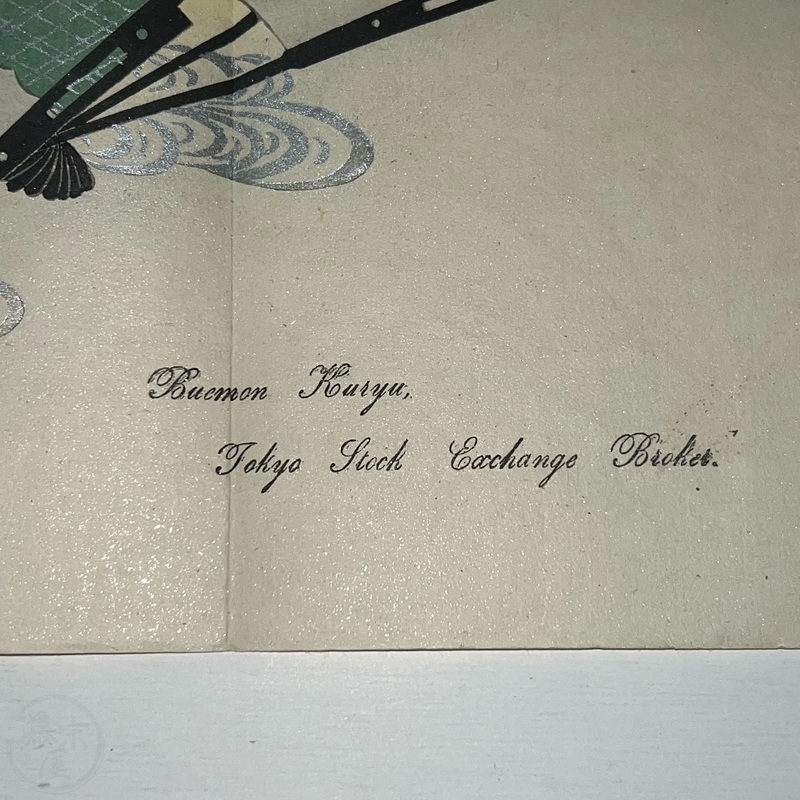 Buemon Kuryu,
Tokyo Stock Exchange Broker.